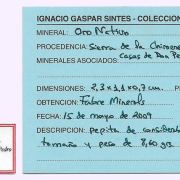 IGNACIO GASPAR SINTES - COLECCION
MINERAL: Oro Nativo
PROCEDENCIA: Sierra de la
MINERALES ASOCIADOS: Casas de Don Pe
DIMENSIONES: 2,3 x 1,1 x 0,7 cm.
OBTENCION: Fabre Minerals
FECHA: 15 de mayo de 2009
DESCRIPCION: pepita de considerable
tamaño y peso de 8,60 grs
Pedro